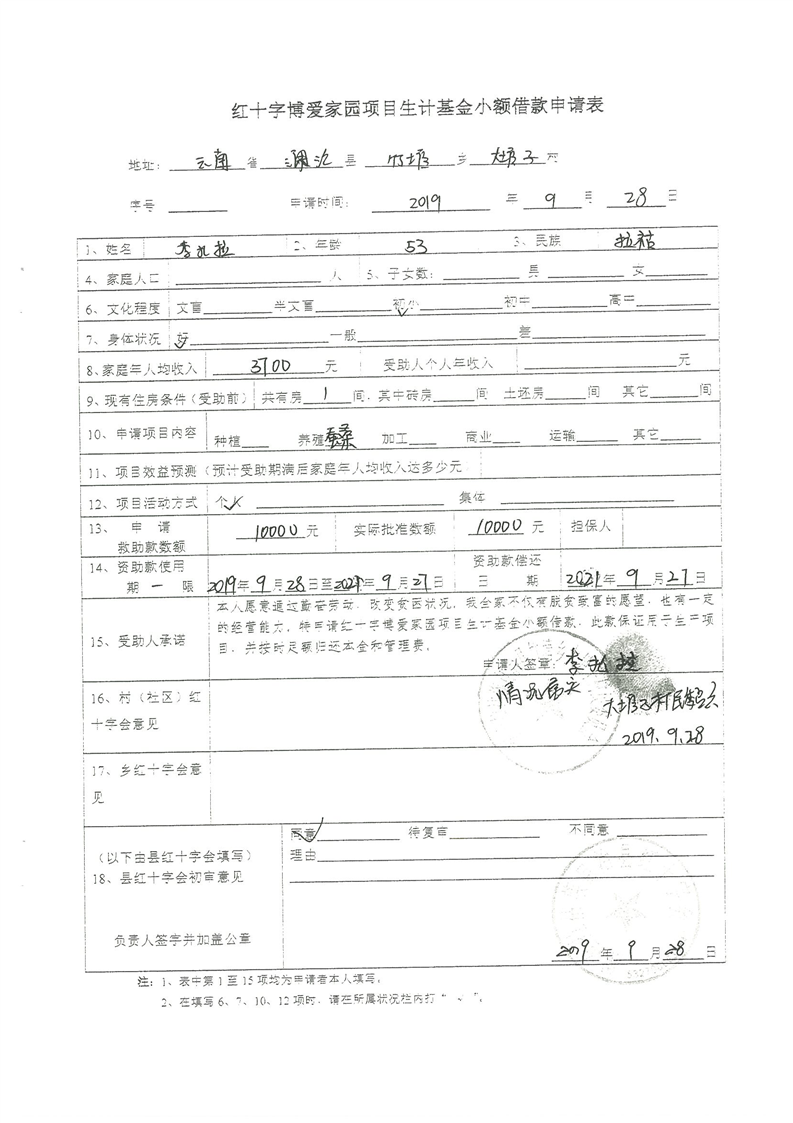 红十字博爱家园项目生计基金小额借款申请表
地址： 云南 省 澜沧 县 竹塘 乡 大塘子 村
序号 申请时间： 2019 年 9 月 28 日
1、姓名 李扎拉 2、年龄 53 3、民族 拉祜
4、家庭人口 人 5、子女数： 男 女
6、文化程度 文盲 半文盲 初小 ✓ 初中 高中
7、身体状况 好 ✓ 一般 差
8、家庭年人均收入 3700 元 受助人个人年收入 元
9、现有住房条件（受助前） 共有房 1 间，其中砖房 间 土坯房 间 其它 间
10、申请项目内容 种植 养殖 蚕桑 加工 商业 运输 其它
11、项目效益预测（预计受助期满后家庭年人均收入达多少元
12、项目活动方式 个人 ✓ 集体
13、申请救助款数额 10000 元 实际批准数额 10000 元 担保人
14、资助款使用期一限 2019年9月28日至2021年9月27日 资助款偿还日期 2021年9月27日
15、受助人承诺
本人愿意通过勤苦劳动，改变贫困状况，我全家不仅有脱贫致富的愿望，也有一定
的经营能力，特申请红十字博爱家园项目生计基金小额借款，此款保证用于生产项
目，并按时足额归还本金和管理费。
申请人签章：李扎拉
16、村（社区）红十字会意见
情况属实
大塘子村民委员会
2019.9.28
17、乡红十字会意见
同意 ✓ 待复审 不同意
理由
（以下由县红十字会填写）
18、县红十字会初审意见
负责人签字并加盖公章
2019 年 9 月 28 日
注：1、表中第1至15项均为申请者本人填写。
2、在填写6、7、10、12项时，请在所属状况栏内打“√”。